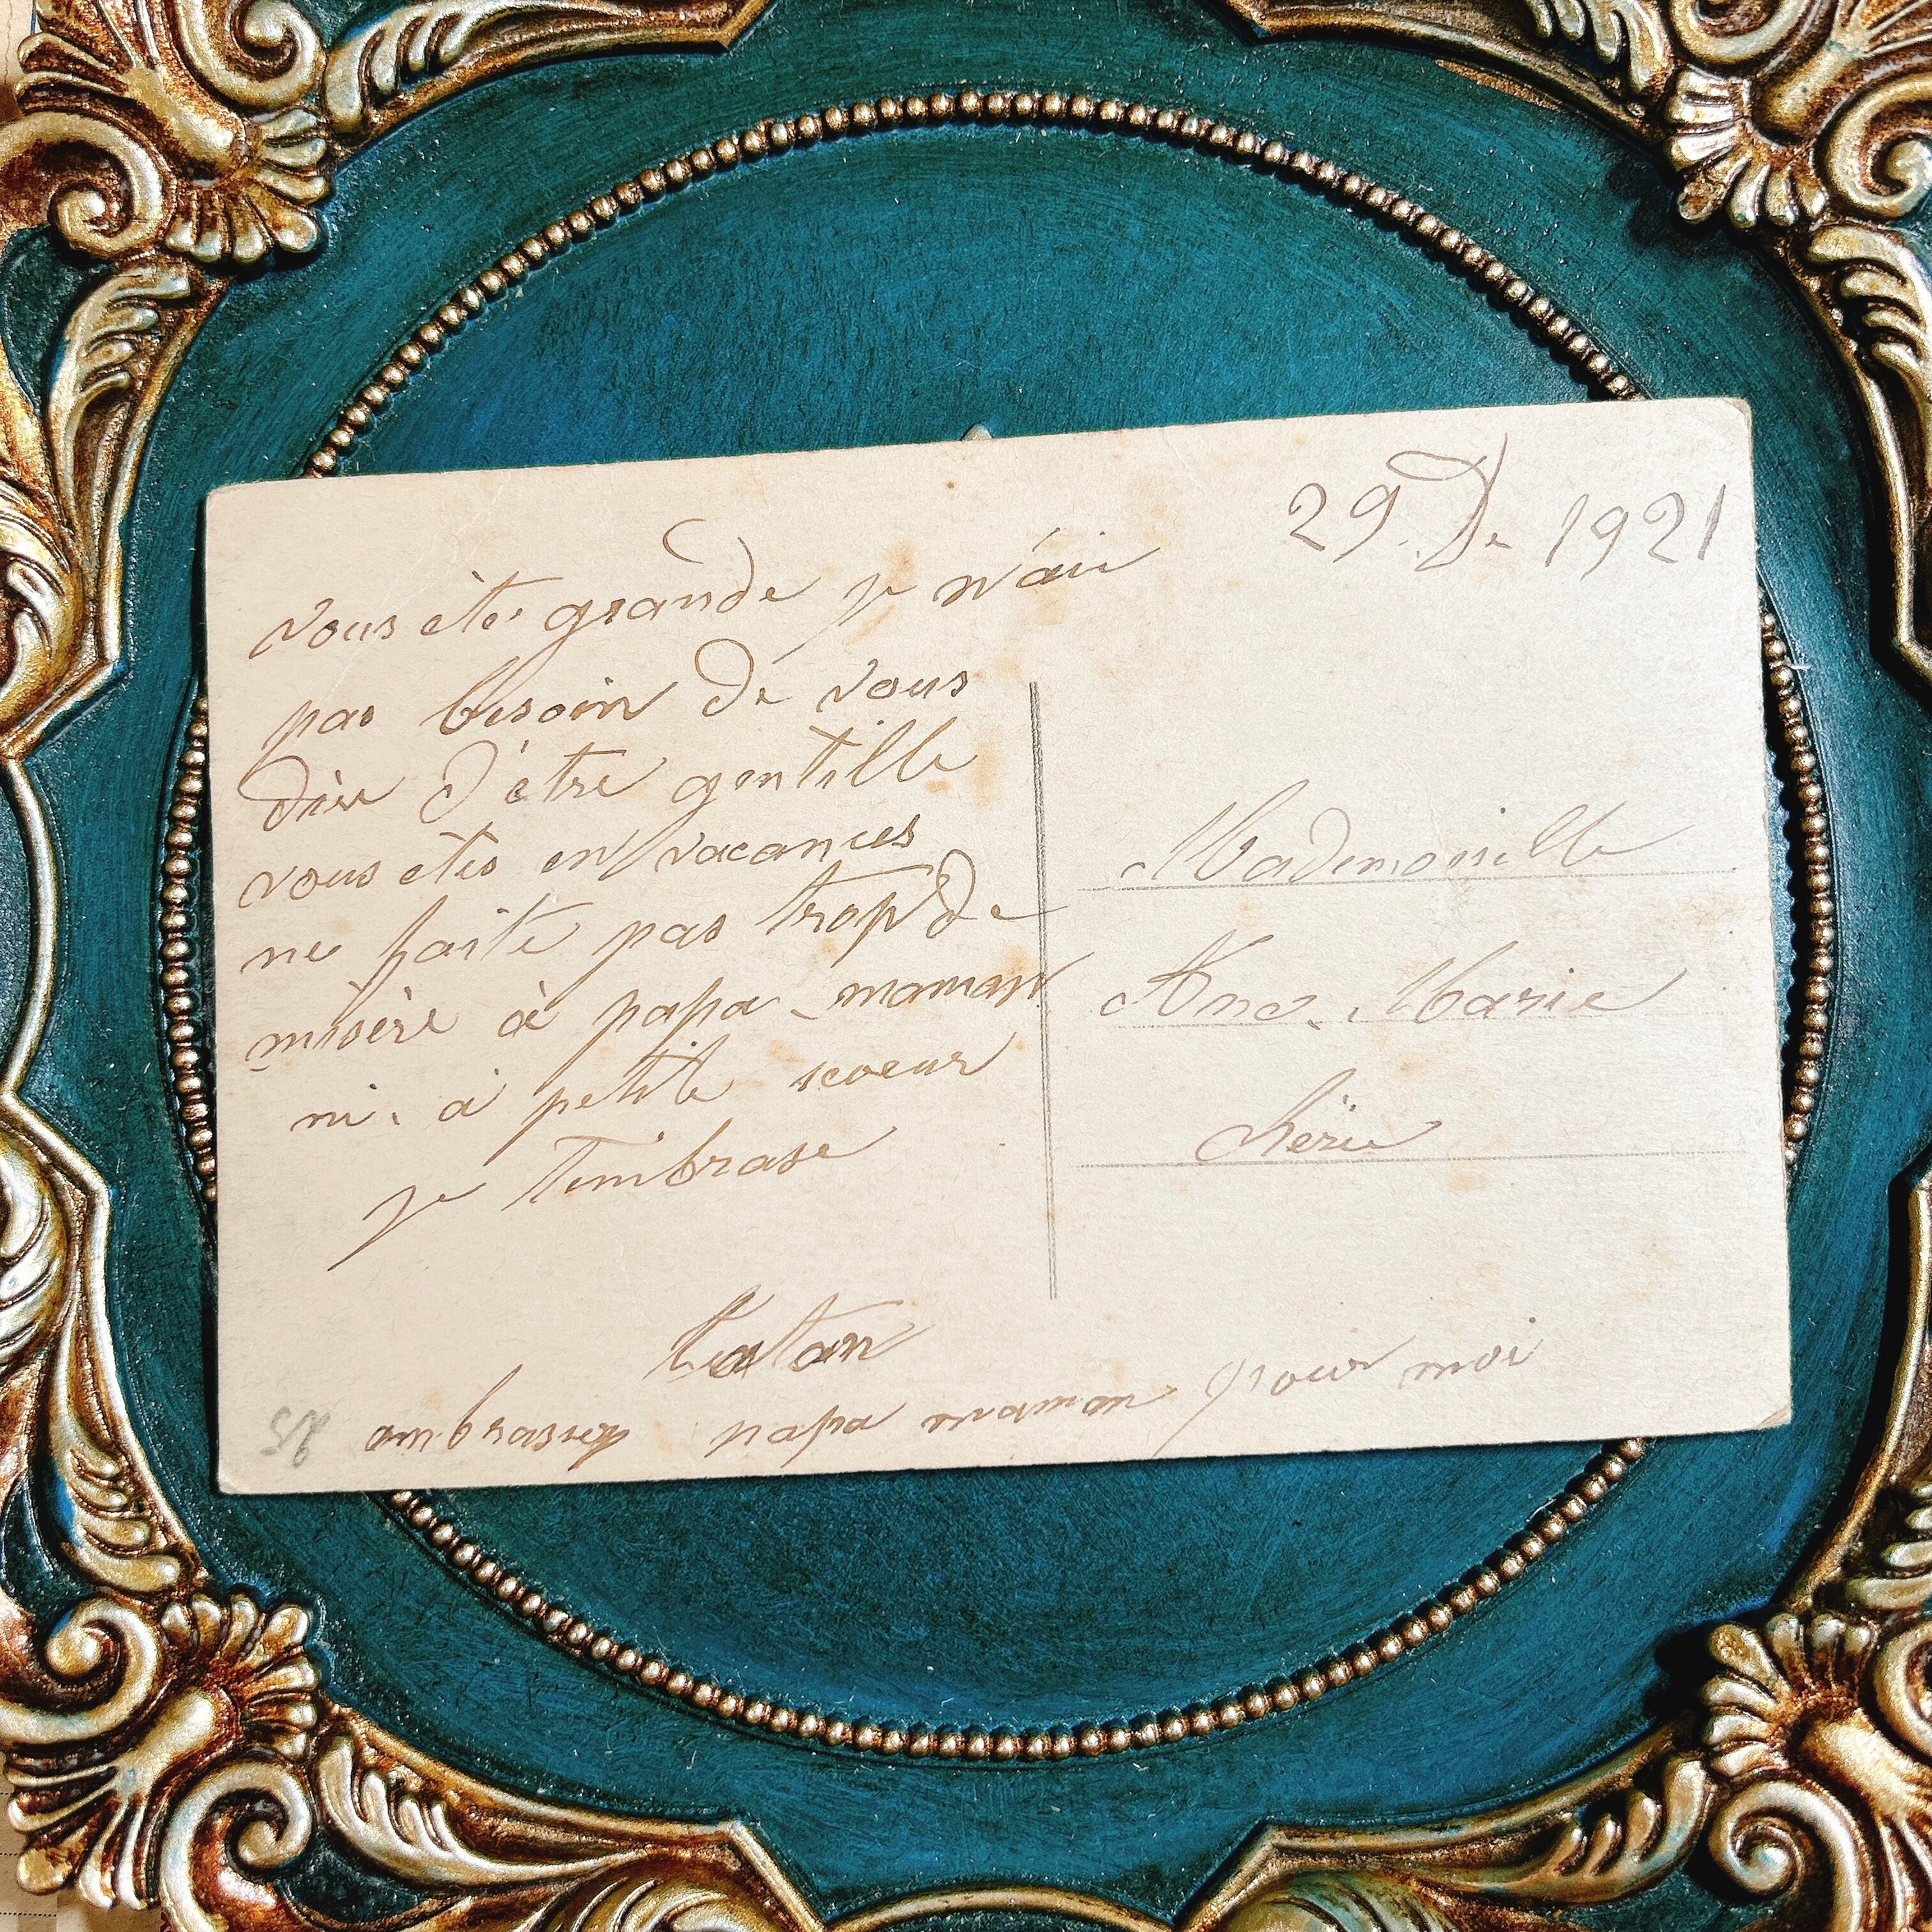 29. De 1921
vous êtes grande je n'ai
pas besoin de vous
dire d'être gentille
vous etes en vacances
ne faite pas trop de
misère à papa - maman
ni. à petite scoeur
je t'embrase
tatan
ambrassez papa maman pour moi
Mademoiselle
Ane-Marie
Chérie